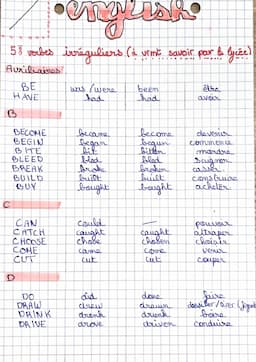 english
58 verbes irréguliers (à vrmt savoir par le lycée)
Auxiliaires
BE was/were been être
HAVE had had avoir
B
BECOME became become devenir
BEGIN began begun commencer
BITE bit bitten mordre
BLEED bled bled saigner
BREAK broke broken casser
BUILD built built construire
BUY bought bought acheter
C
CAN could — pouvoir
CATCH caught caught attraper
CHOOSE chose chosen choisir
COME came come venir
CUT cut cut couper
D
DO did done faire
DRAW drew drawn dessiner/tirer
DRINK drank drunk boire
DRIVE drove driven conduire